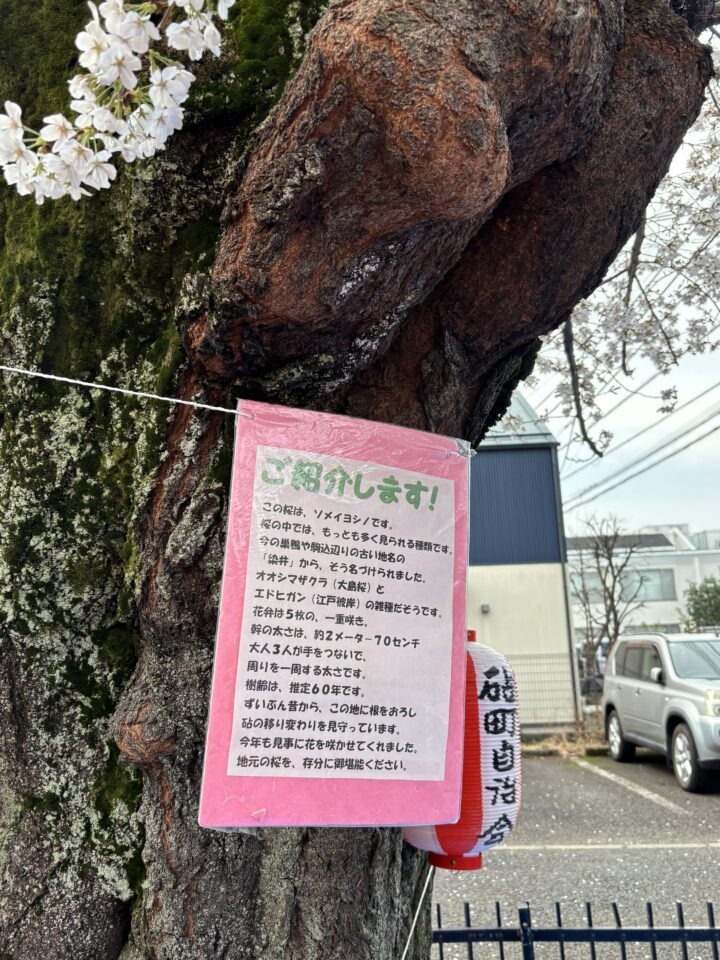 ご紹介します!
この桜は、ソメイヨシノです。
桜の中では、もっとも多く見られる種類です。
今の巣鴨や駒込辺りの古い地名の
「染井」から、そう名づけられました。
オオシマザクラ（大島桜）と
エドヒガン（江戸彼岸）の雑種だそうです。
花弁は5枚の、一重咲き。
幹の太さは、約2メーター70センチ
大人3人が手をつないで、
周りを一周する太さです。
樹齢は、推定60年です。
ずいぶん昔から、この地に根をおろし
砧の移り変わりを見守っています。
今年も見事に花を咲かせてくれました。
地元の桜を、存分に御堪能ください。
砧町自治会